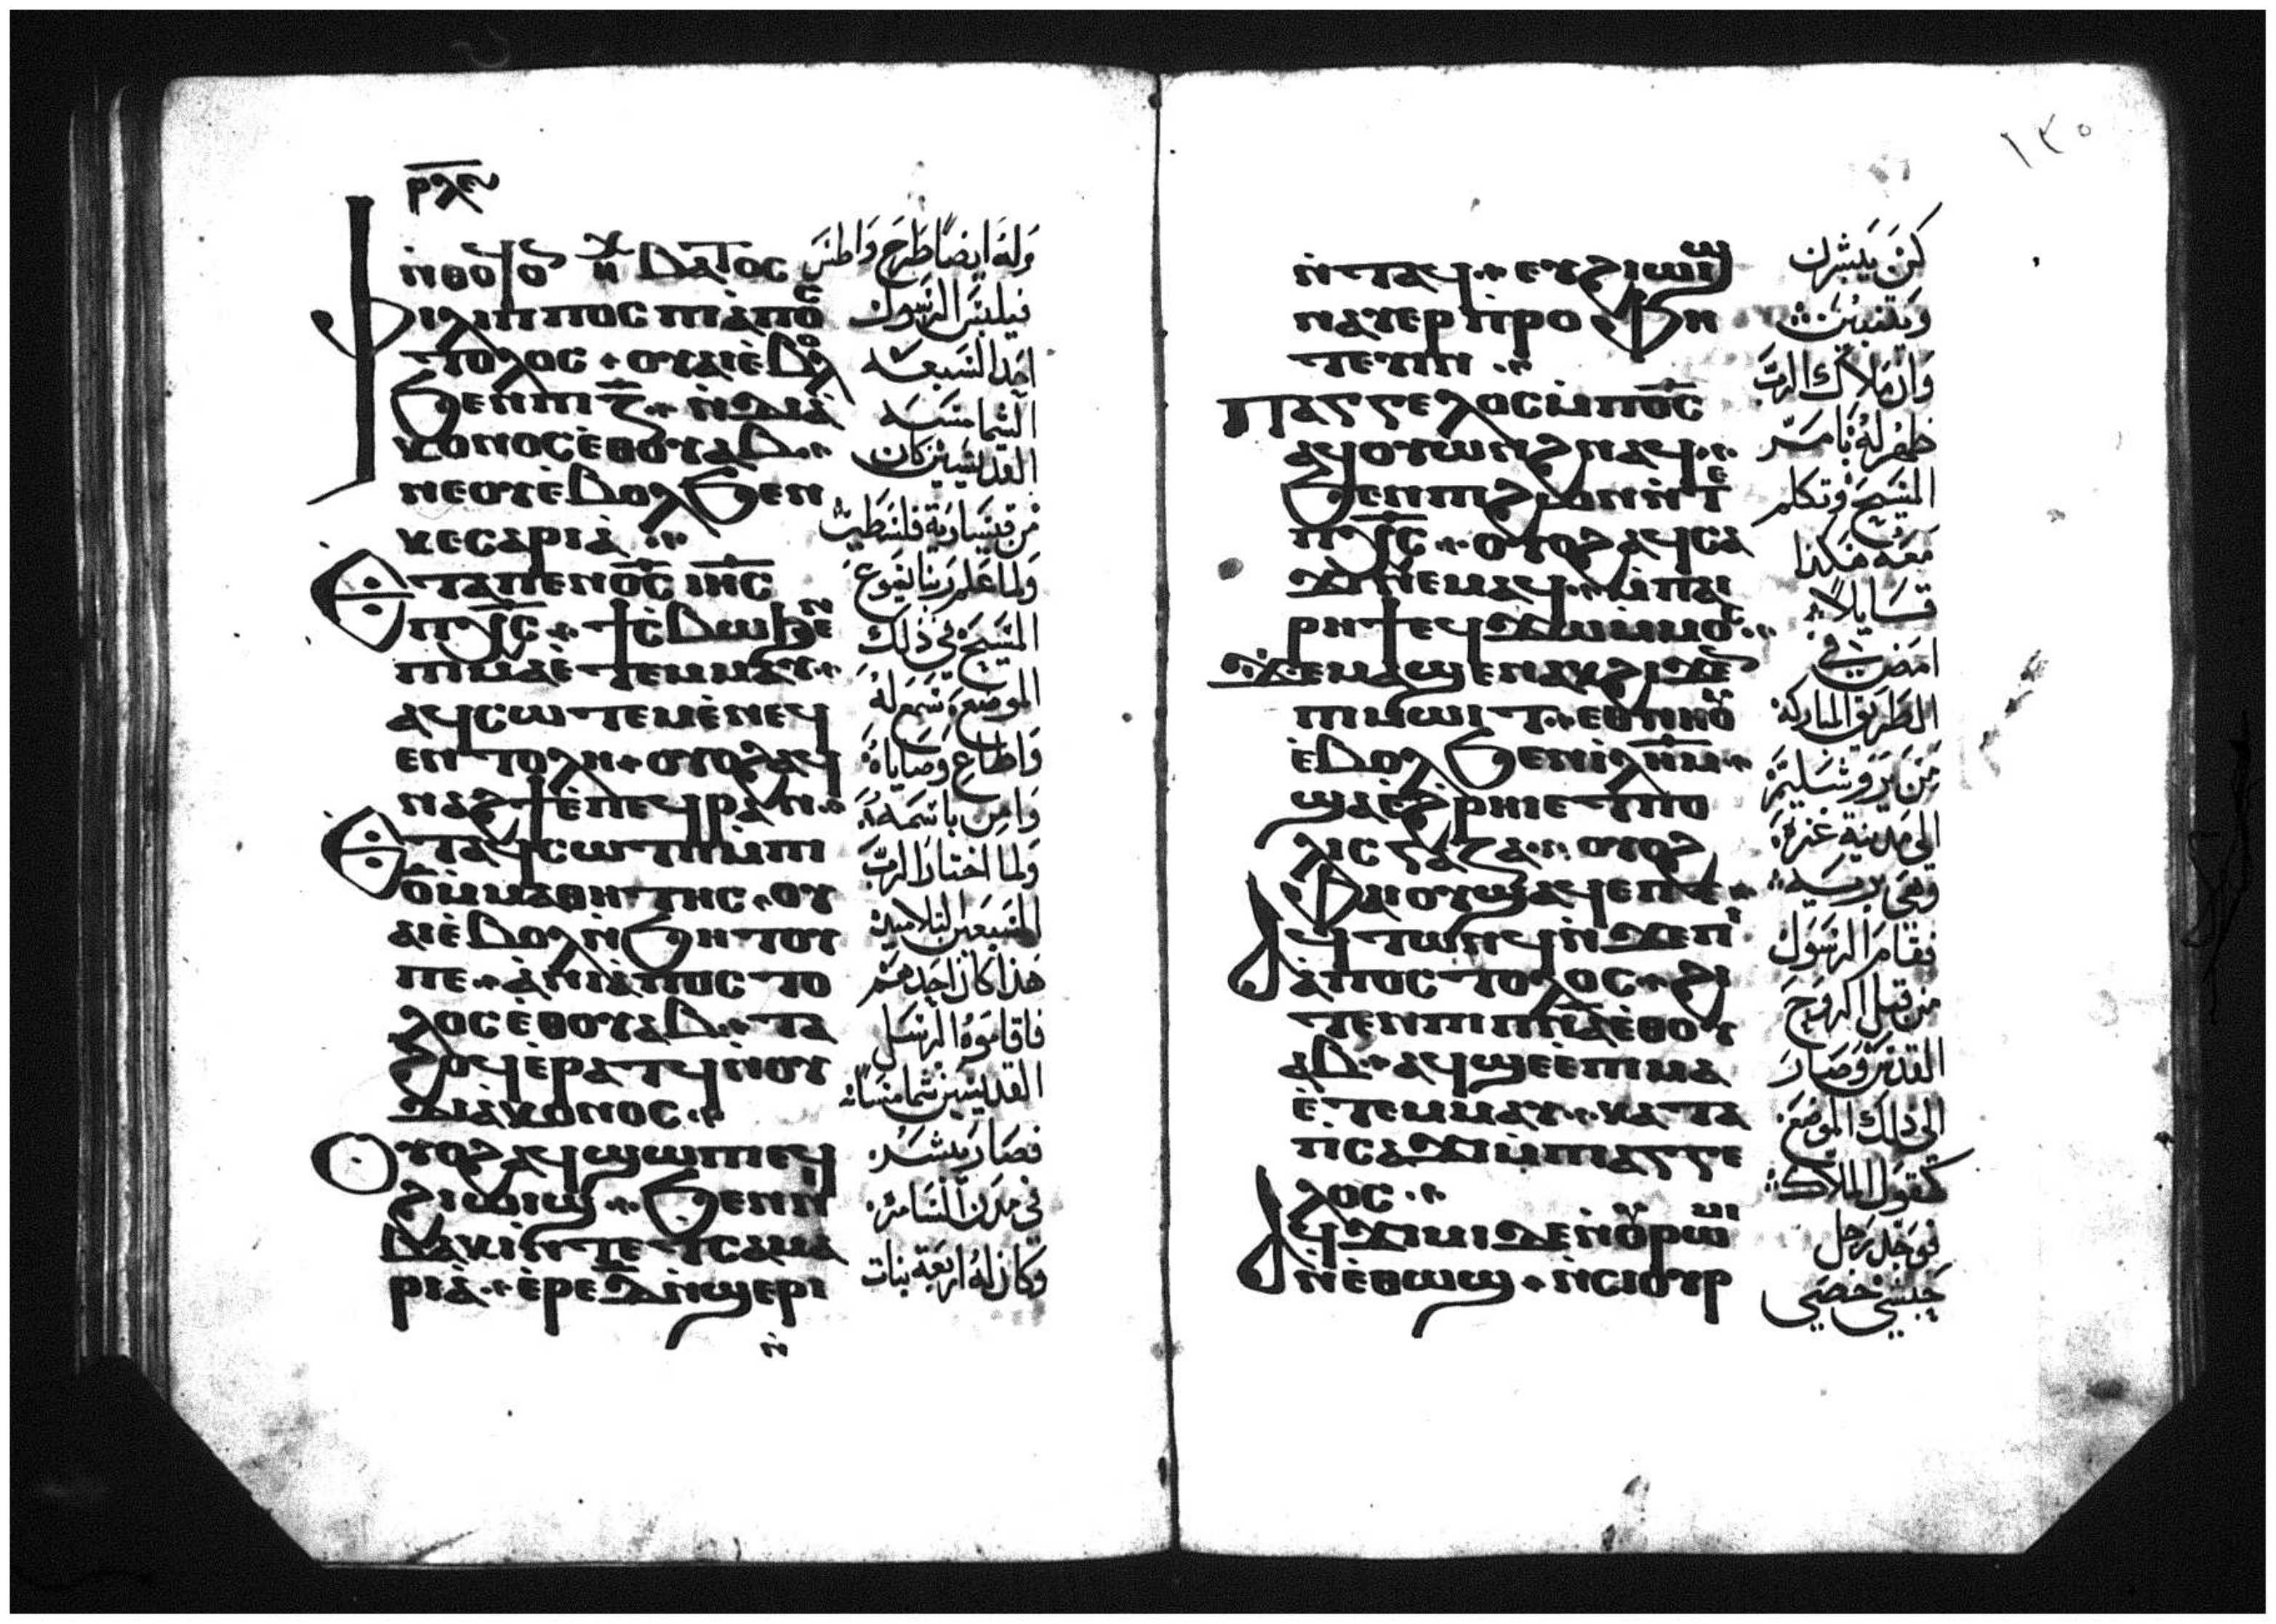 ⲣⲗⲉ
ⲛ̀ⲑⲟϥ ⲟⲛ ⲏⲭ ⲃⲁⲧⲟⲥ
ⲫⲓⲗⲓⲡⲡⲟⲥ ⲡⲓⲁ̀ⲡⲟⲥ
ⲧⲟⲗⲟⲥ ⲟⲩⲁⲓ ⲉ̀ⲃⲟⲗ
ϧⲉⲛ ⲡⲓⲍ̅ ⲛ̀ⲇⲓⲁ̀
ⲕⲟⲛⲟⲥ ⲉ̀ⲑⲟⲩⲁⲃ
ⲛⲉ ⲟⲩⲉ̀ⲃⲟⲗ ϧⲉⲛ
ⲕⲉⲥⲁⲣⲓⲁ̀
ⲉⲧⲁ ⲡⲉⲛⲟ̅ⲥ̅ ⲓⲏ̅ⲥ̅
ⲡⲭ̅ⲥ̅ ϯⲥ̀ⲃⲱ ϧⲉⲛ
ⲡⲓⲙⲁ ⲉ̀ⲧⲉⲙⲙⲁⲩ
ⲁϥⲥⲱⲧⲉⲙ ⲉ̀ⲛⲉϥ
ⲉⲛⲧⲟⲗⲏ ⲟⲩⲟϩ ⲁϥ
ⲛⲁϩϯ ⲉ̀ⲡⲉϥⲣⲁⲛ
ⲉⲧⲁϥⲥⲱⲧⲡ ⲙ̀ⲡⲓ
ⲟ̅ ⲙ̀ⲙⲁⲑⲏⲧⲏⲥ ⲟⲩ
ⲁⲓ ⲉ̀ⲃⲟⲗ ⲛ̀ϧⲏⲧⲟⲩ
ⲡⲉ ⲁ̀ ⲛⲓⲁ̀ⲡⲟⲥⲧⲟ
ⲗⲟⲥ ⲉ̀ⲑⲟⲩⲁⲃ ⲧⲁ
ϩⲟϥ ⲉ̀ⲣⲁⲧϥ ⲛ̀ⲟⲩ
ⲇⲓⲁⲕⲟⲛⲟⲥ
ⲟⲩⲟϩ ⲁϥϣⲱⲡⲓ ⲉϥ
ϩⲓⲱⲓϣ ϧⲉⲛ ⲛⲓ
ⲃⲁⲕⲓ ⲛ̀ⲧⲉ ⲧⲥⲁⲙⲁ
ⲣⲓⲁ̀ ⲉ̀ⲣⲉ ⲇ̅ ⲛ̀ϣⲉⲣⲓ
ⲛ̀
وله ايضا طرح واطس
فيلبس الرسول
احد السبعه
الشمامسه
القديسين كان
من قيساوية فلسطين
ولما علم ربنا يسوع
المسيح في ذلك
الموضع سمع له
واطاع وصاياه
وامن باسمه
ولما اختار الرب
السبعين التلاميذ
هذا كان احد منهم
فاقاموه الرسل
القديسين شماسا
فصار يبشر
في مدن السامره
وكان له اربعة بنات
١٣٥
ⲛ̀ⲧⲁϥ ⲉⲩϩⲓⲱⲓϣ
ⲛⲁⲩⲉⲣⲡ̀ⲣⲟⲫⲏ
ⲧⲉⲩⲓⲛ
ⲡⲁⲅⲅⲉⲗⲟⲥ ⲙ̀ⲡⲟ̅ⲥ̅
ⲁϥⲟⲩⲱⲛϩ ⲛⲁϥ
ϧⲉⲛ ⲡⲓϩⲱⲛ ⲛ̀ⲧⲉ
ⲡⲭ̅ⲥ̅ ⲟⲩⲟϩ ⲁϥⲥⲁ
ϫⲓ ⲛⲉⲙⲁϥ ⲙ̀ⲡⲁⲓ
ⲣⲏϯ ⲉϥϫⲱ ⲙ̀ⲙⲟⲥ
ϫⲉ ⲙⲁϣⲉⲛⲁⲕ ϩⲓϫⲉⲛ
ⲡⲓⲙⲱⲓⲧ ⲉⲑⲛⲏⲟⲩ
ⲉ̀ⲃⲟⲗ ϧⲉⲛ ⲓ̀ⲗ̅ⲏ̅ⲙ̅
ϣⲁ ⲉ̀ϩⲣⲏⲓ ⲉ̀ⲧⲡⲟ
ⲗⲓⲥ ⲅⲁⲍⲁ ⲟⲩⲟϩ
ⲫⲏ ⲟⲩϣⲁϥⲉ ⲡⲉ
ⲁϥⲧⲱⲛϥ ⲛ̀ϫⲉ ⲡⲓ
ⲁ̀ⲡⲟⲥⲧⲟⲗⲟⲥ ϩⲓ
ⲧⲉⲛ ⲡⲓⲡ̅ⲛ̅ⲁ̅ ⲉ̀ⲑⲟⲩ
ⲁⲃ ⲁϥϣⲉ ⲉ̀ⲡⲓⲙⲁ
ⲉ̀ⲧⲉⲙⲙⲁⲩ ⲕⲁⲧⲁ
ⲡ̀ⲥⲁϫⲓ ⲙ̀ⲡⲓⲁⲅⲅⲉ
ⲗⲟⲥ
ⲁϥϫⲓⲙⲓ ⲇⲉ ⲛ̀ⲟⲩⲣⲱⲙⲓ
ⲛ̀ⲉ̀ⲑⲱϣ ⲛ̀ⲥⲓⲟⲩⲣ
كن يبشرن
ويتنبين
وان ملاك الرب
ظهر له بامر
المسيح وتكلم
معه هكذا
قايلا
امض في
الطريق المباركه
من يروشليم
الى مدينة غزه
وهى بريه
فقام الرسول
من قبل الروح
القدس وصار
الى ذلك الموضع
كقول الملاك
فوجد رجل
حبشي خصي